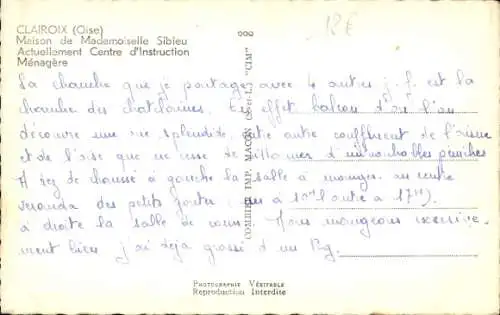 18€
CLAIROIX (Oise)
Maison de Mademoiselle Sibieu
Actuellement Centre d'Instruction
Ménagère
COMBIER IMP. MACON "CIM"
La chambre que je partage avec 4 autres j. f. est la
chambre des chatelaines. En effet balcon d'où l'on
découvre une vue splendide, entre autre confluent de l'aisne
et de l'oise que ne cesse de sillonner d'innombrables peniches
A rez de chaussé à gauche la salle à manger. au centre
veranda des petits gouter (un à 10H l'autre à 17H).
à droite la salle de cours. Nous mangeons excessive
ment bien j'ai déja grossi d'un Kg.
PHOTOGRAPHIE VÉRITABLE
Reproduction Interdite